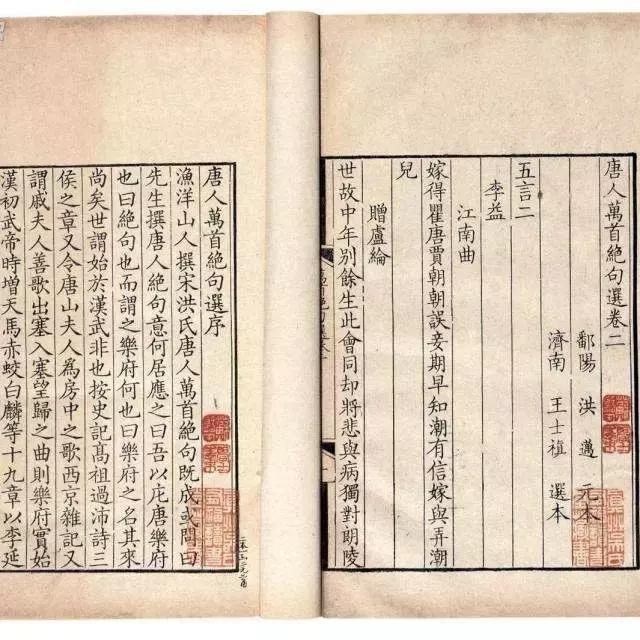 唐人萬首絶句選卷二
鄱陽 洪邁 元本
濟南 王士禛 選本
五言二
李益
江南曲
嫁得瞿唐賈朝朝誤妾期早知潮有信嫁與弄潮
兒
贈盧綸
世故中年別餘生此會同却將悲與病獨對朗陵
唐人萬首絶句選序
漁洋山人撰宋洪氏唐人萬首絶句既成或問曰
先生撰唐人絶句意何居應之曰吾以庀唐樂府
也曰絶句也而謂之樂府何也曰樂府之名其來
尚矣世謂始於漢武非也按史記髙祖過沛詩三
侯之章又令唐山夫人為房中之歌西京雜記又
謂戚夫人善歌出塞入塞望歸之曲則樂府實始
漢初武帝時增天馬赤蛟白麟等十九章以李延